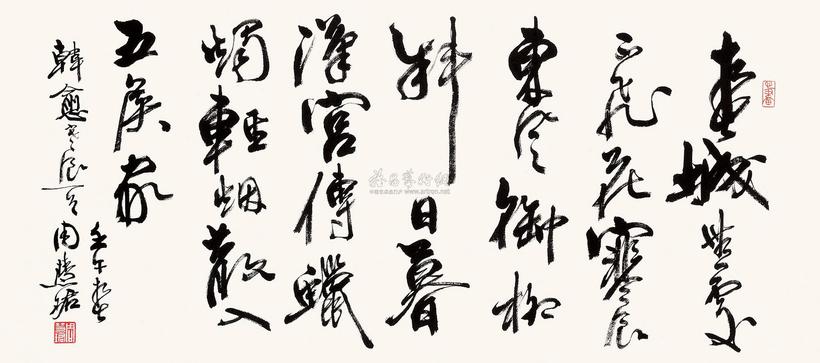 春城無處
不飛花寒食
東風御柳
斜日暮
漢宮傳蠟
燭輕烟散入
五侯家
壬午春
韓愈寒食一首周慧珺
www.artron.net